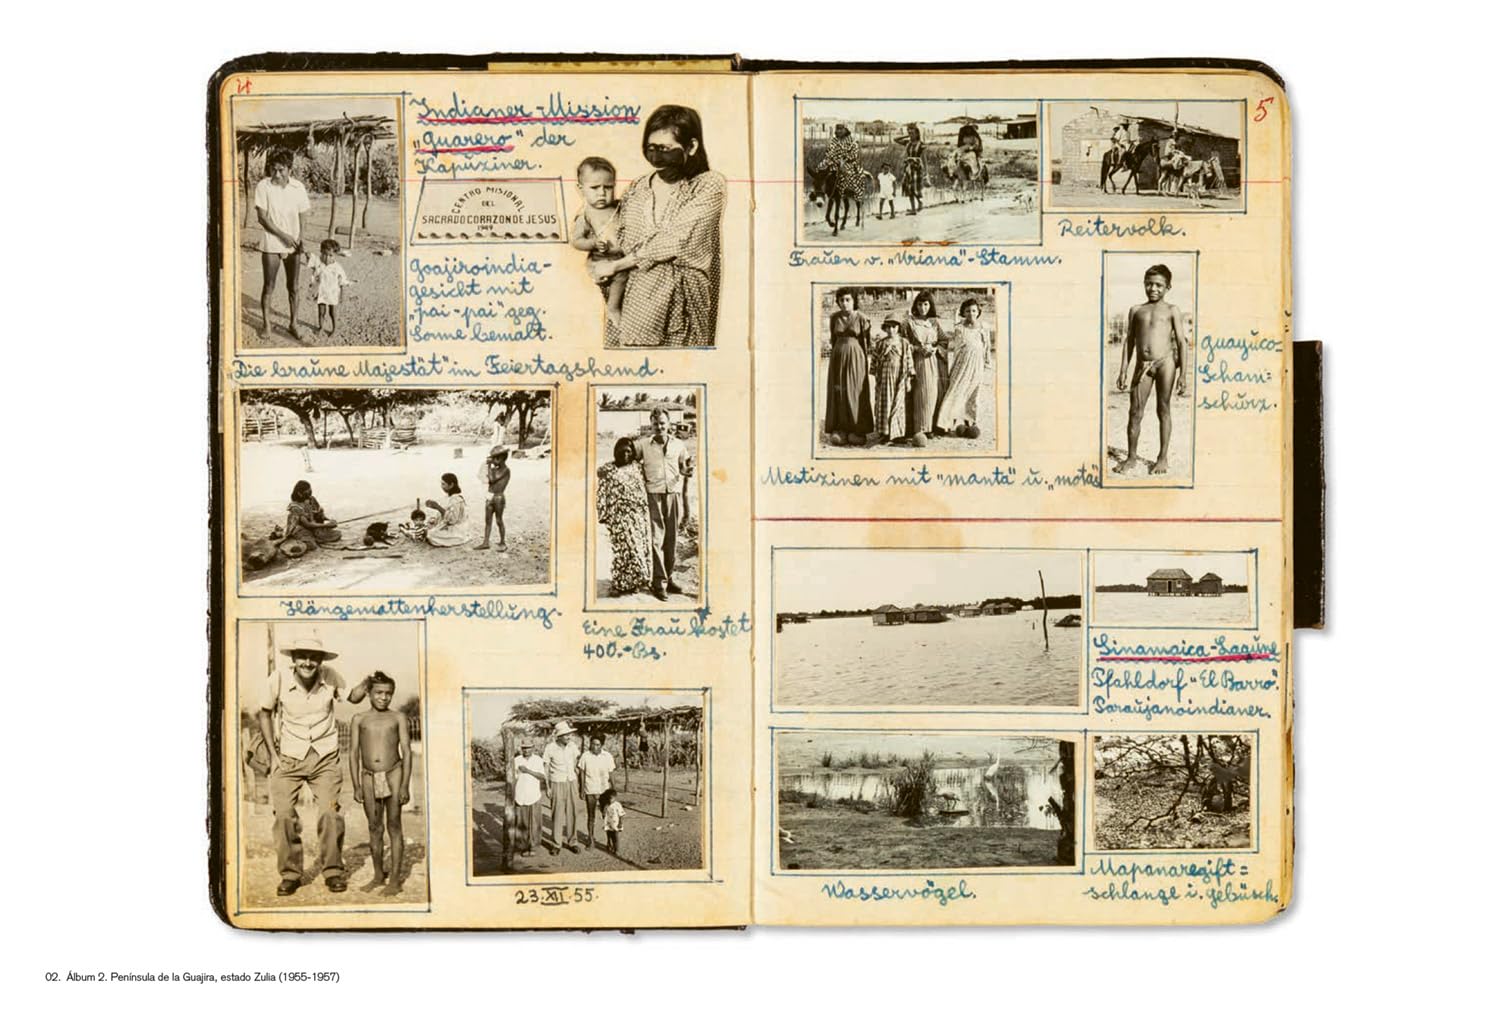 4
Indianer-Mission
„Guarero" der
Kapuziner.
CENTRO MISIONAL
DEL
SAGRADO CORAZON DE JESUS
1949
Goajiroindia-
gesicht mit
„pai-pai" geg.
Sonne bemalt.
„Die braune Majestät" im Feiertagshemd.
Hängemattenherstellung.
Eine Frau kostet
400.-Bs.
23.XII.55.
5
Frauen v. „Uriana"-Stamm.
Reitervolk.
Guayuco-
Scham=
schürz.
Mestizinen mit „manta" u. „motas"
Sinamaica-Lagune
Pfahldorf „El Barro".
Paraujanoindianer.
Wasservögel.
Mapanaregift=
schlange i. Gebüsch.
02. Álbum 2. Península de la Guajira, estado Zulia (1955-1957)